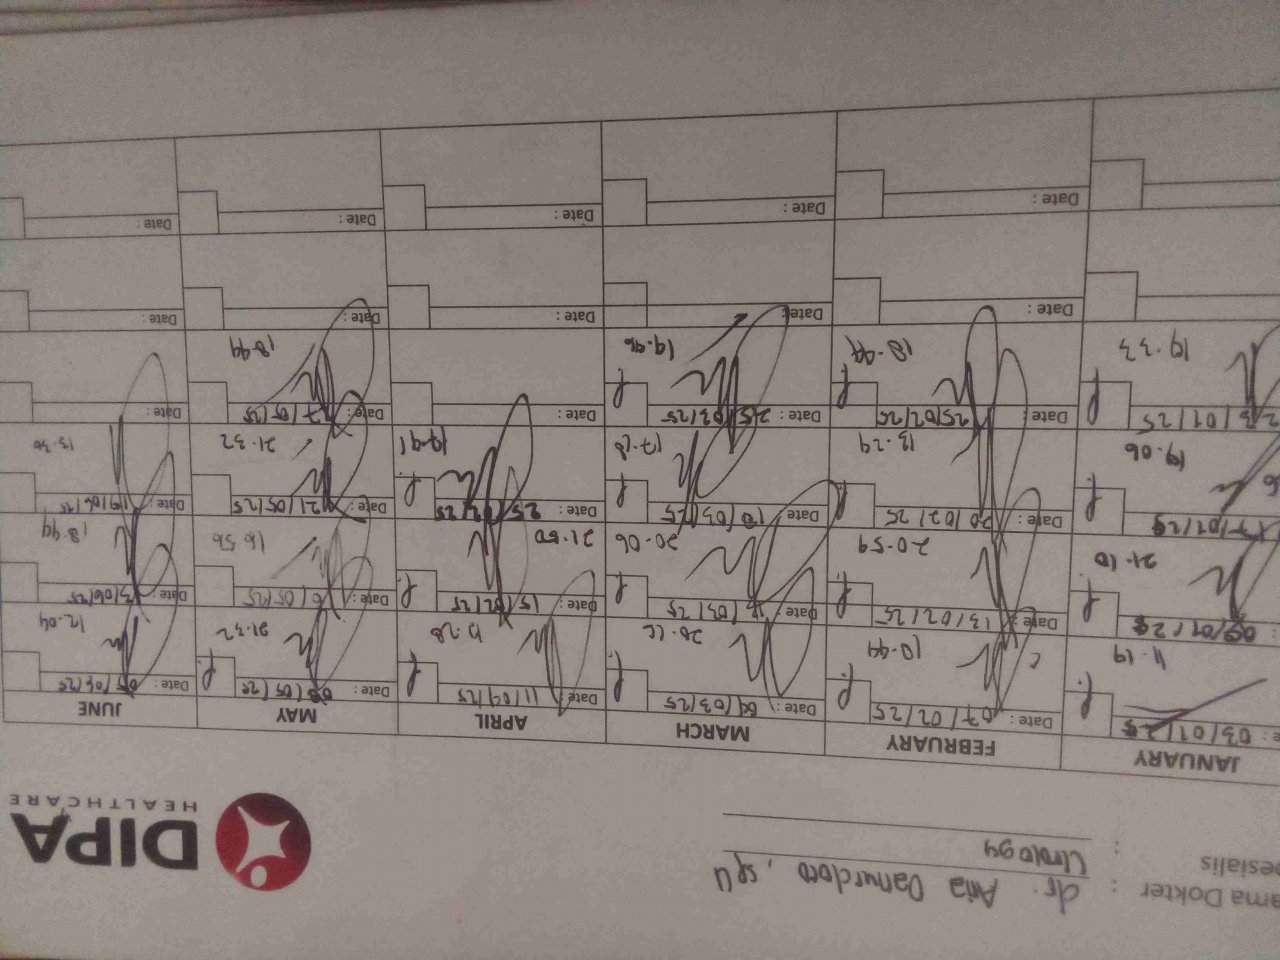 ama Dokter : dr. Aria Danurdoro, SpU
esialis : Urology
DIPA
HEALTHCARE
JANUARY FEBRUARY MARCH APRIL MAY JUNE
03/01/25 Date: 07/02/25 Date: 04/03/25 Date: 11/04/25 Date: Date:
11.19 18.44 20.12 17.28 21.32 12.04
09/01/25 Date: 13/02/25 Date: /03/25 Date: 15/ /25 Date: 16/05/25 Date: 13/06/25
21.10 20.59 20.06 21.50 16.56 18.44
17/01/25 Date: 20/02/25 Date: 18/03/25 Date: 25/ /25 Date: 21/05/25 Date: 19/06/25
19.06 13.29 17.28 19.41 21.32 13.30
23/01/25 Date: 25/02/25 Date: 25/03/25 Date: Date: 27/05/25 Date:
19.33 18.44 19.46 18.44
Date: Date: Date: Date: Date:
Date: Date: Date: Date: Date: